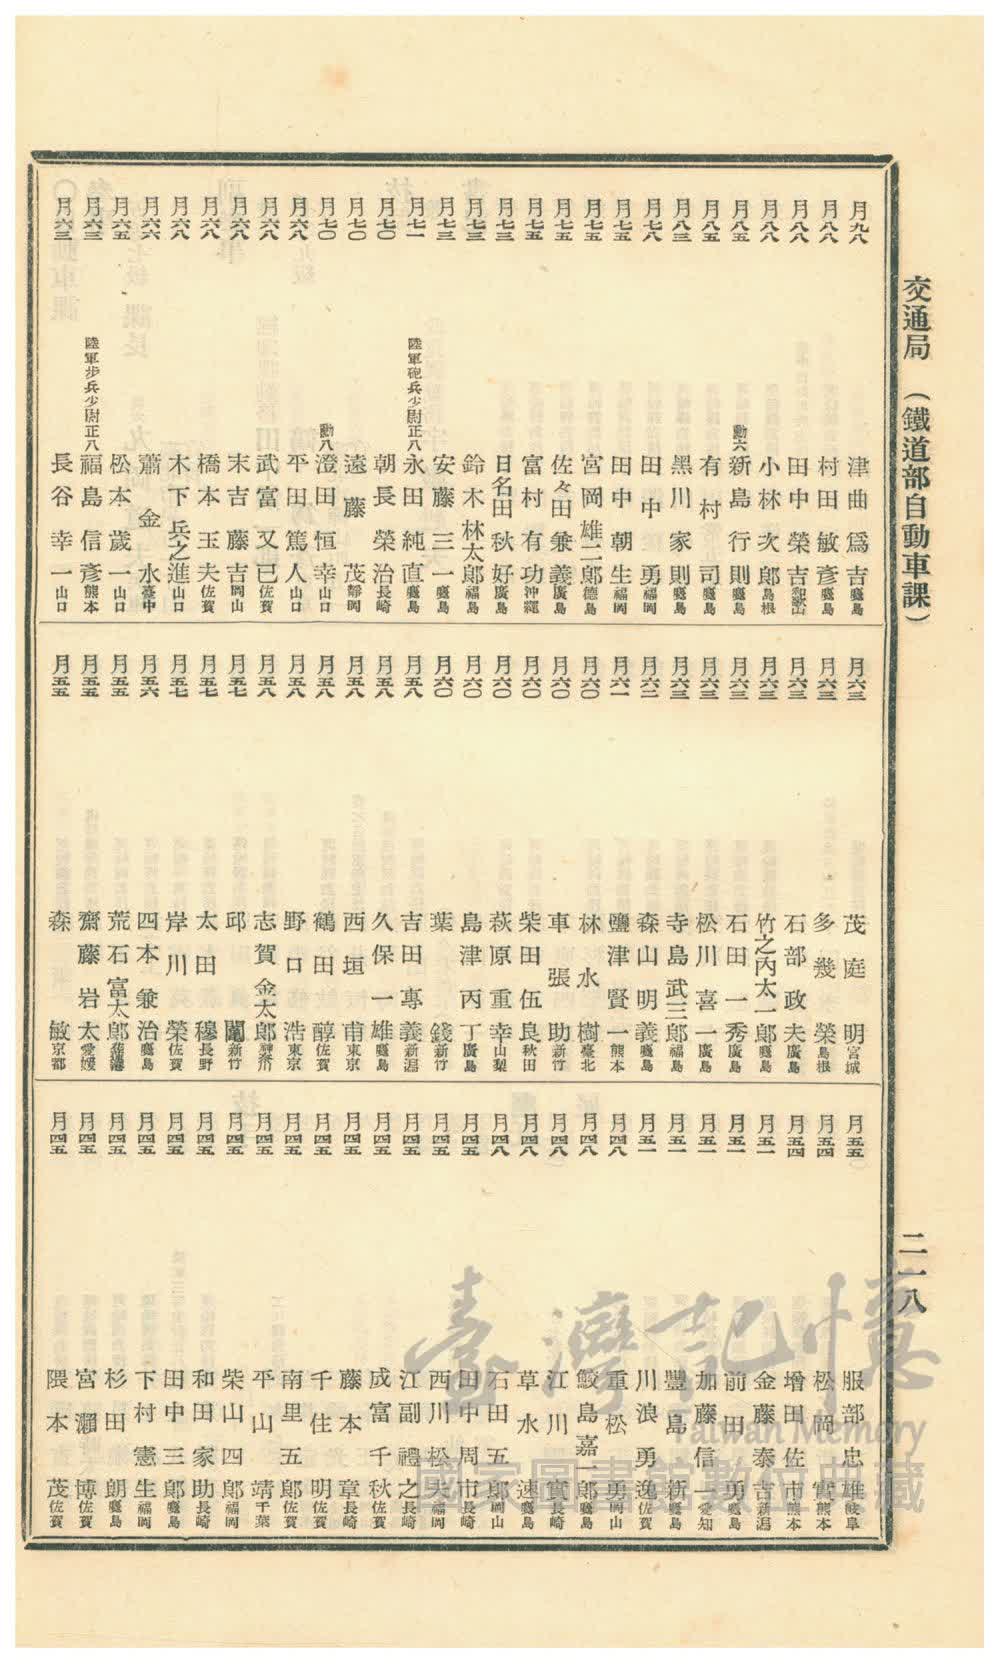 交通局 （鐵道部自動車課）
二一八
月九八 津曲爲吉 鹿兒島
月八八 村田敏彥 鹿兒島
月八八 田中榮吉 和歌山
月八八 小林次郎 島根
月八五 勳六 新島行則 鹿兒島
月八五 有村司 鹿兒島
月八三 黑川家則 鹿兒島
月七八 田中勇 福岡
月七五 田中朝生 福岡
月七五 宮岡雄二郎 德島
月七五 佐々田兼義 廣島
月七五 富村有功 沖繩
月七三 日名田秋好 廣島
月七三 鈴木林太郎 福島
月七三 安藤三一 鹿兒島
月七一 陸軍砲兵少尉正八 永田純直 鹿兒島
月七〇 朝長榮治 長崎
月七〇 遠藤茂 靜岡
月七〇 勳八 澄田恒幸 山口
月六八 平田篤人 山口
月六八 武富又已 佐賀
月六八 末吉藤吉 岡山
月六八 橋本玉夫 佐賀
月六八 木下兵之進 山口
月六六 蕭金水 臺中
月六五 松本歲一 山口
月六三 陸軍步兵少尉正八 福島信彥 熊本
月六三 長谷幸一 山口
月六三 茂庭明 宮城
月六三 多幾榮 島根
月六三 石部政夫 廣島
月六三 竹之內太一郎 鹿兒島
月六三 石田一秀 廣島
月六三 松川喜一 廣島
月六三 寺島武三郎 福島
月六二 森山明義 鹿兒島
月六一 鹽津賢一 熊本
月六〇 林水樹 臺北
月六〇 車張助 新竹
月六〇 柴田伍良 秋田
月六〇 萩原重幸 山梨
月六〇 島津丙丁 廣島
月六〇 葉錢 新竹
月五八 吉田專義 新潟
月五八 久保一雄 鹿兒島
月五八 西垣甫 東京
月五八 鶴田醇 佐賀
月五八 野口浩 東京
月五八 志賀金太郎 神奈川
月五七 邱闖 新竹
月五七 太田穆 長野
月五七 岸川榮 佐賀
月五六 四本兼治 鹿兒島
月五五 荒石富太郎
月五五 齋藤岩太 愛媛
月五五 森敏 京都
月五五 服部忠雄 岐阜
月五四 松岡實 熊本
月五四 增田佐市 熊本
月五一 金藤泰吉 新潟
月五一 前田勇 鹿兒島
月五一 加藤信一 愛知
月五一 豐島新 鹿兒島
月五一 川浪勇逸 佐賀
月四八 重松勇 岡山
月四八 鮫島嘉一郎 鹿兒島
月四八 江川實 長崎
月四八 草水速 鹿兒島
月四八 石田五郎 岡山
月四五 田中周市 長崎
月四五 西川松夫 福岡
月四五 江副禮之 長崎
月四五 成富千秋 佐賀
月四五 藤本章 長崎
月四五 千住明 佐賀
月四五 南里五郎 佐賀
月四五 平山靖 千葉
月四五 柴山四郎 福岡
月四五 和田家助 長崎
月四五 田中三郎 鹿兒島
月四五 下村憲生 福岡
月四五 杉田朗 鹿兒島
月四五 宮瀨博 佐賀
月四五 隈本茂 佐賀
臺灣記憶
Taiwan Memory
國家圖書館數位典藏